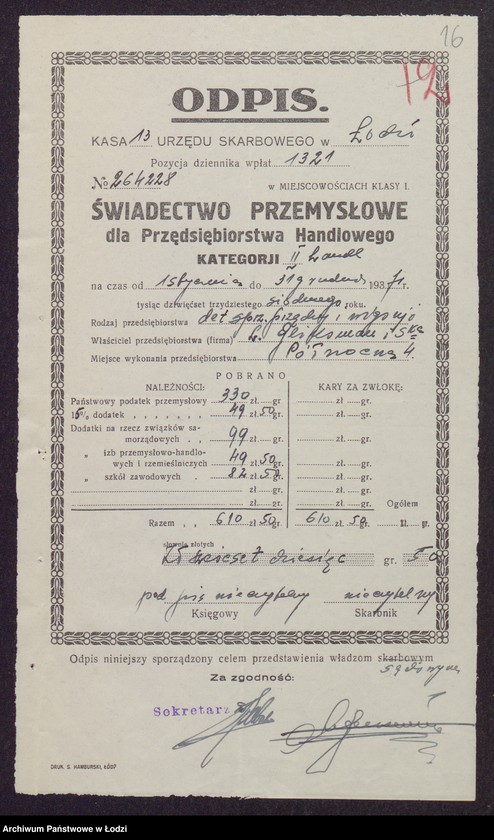 16
12
ODPIS.
KASA 13 URZĘDU SKARBOWEGO w Łodzi
Pozycja dziennika wpłat 1321
№ 264228
w MIEJSCOWOŚCIACH KLASY I.
ŚWIADECTWO PRZEMYSŁOWE
dla Przędsiębiorstwa Handlowego
KATEGORJI II handl
na czas od 1 stycznia do 31 grudnia 1937 r.
tysiąc dziewięćset trzydziestego siódmego roku.
Rodzaj przedsiębiorstwa det. sprz. przędzy i
Właściciel przedsiębiorstwa (firma) i Ska
Miejsce wykonania przedsiębiorstwa Północna 4.
POBRANO
NALEŻNOŚCI:
KARY ZA ZWŁOKĘ:
Państwowy podatek przemysłowy 330 zł. gr. zł. gr.
15% dodatek 49 zł. 50 gr. zł. gr.
Dodatki na rzecz związków sa-
morządowych 99 zł. gr. zł. gr.
„ izb przemysłowo-handlo-
wych i rzemieślniczych 49 zł. 50 gr. zł. gr.
„ szkół zawodowych 82 zł. 50 gr. zł. gr.
zł. gr. zł. gr.
zł. gr. zł. gr. Ogółem
Razem 610 zł. 50 gr. 610 zł. 50 gr. zł. gr.
słownie złotych
sześćset dziesięć gr. 50
podpis nieczytelny nieczytelny
Księgowy Skarbnik
Odpis niniejszy sporządzony celem przedstawienia władzom skarbowym
sądowym
Za zgodność:
Sekretarz
DRUK. S. HAMBURSKI, ŁÓDŹ
Archiwum Państwowe w Łodzi